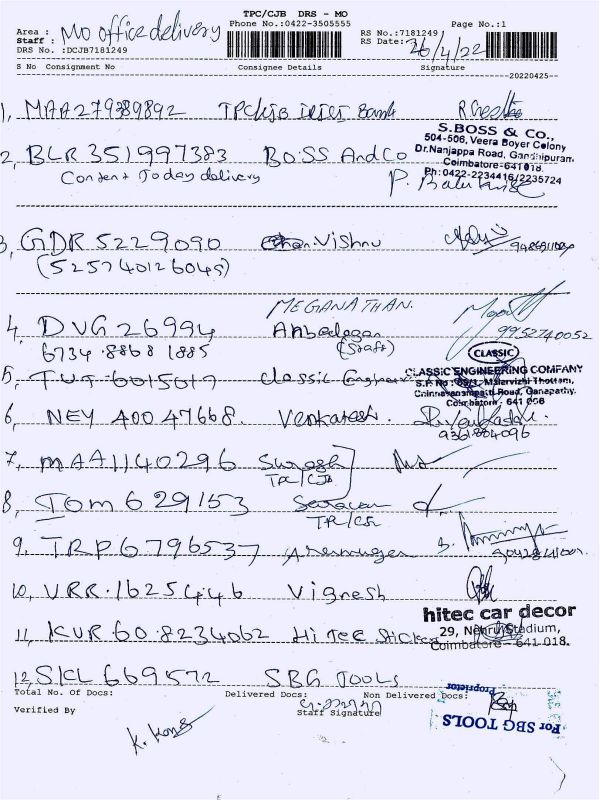 TPC/CJB DRS - MO
Area : Mo office delivery Phone No.:0422-3505555 Page No.:1
Staff : RS No.:7181249
DRS No. :DCJB7181249 RS Date: 26/4/22
S No Consignment No Consignee Details Signature
20220425
1, MAA279389892 Bank
S.BOSS & CO.,
504-506, Veera Boyer Colony
Dr.Nanjappa Road, Gandhipuram
Coimbatore-641 018.
Ph:0422-2234416/2235724
2, BLR 351997383 BOSS And Co
Today delivery
3, GDR 5229090 Vishnu
(525740126045)
MEGANATHAN.
4, DVG 26994 Anbalagan 9952740052
6734.8868 1885 (Staff)
CLASSIC
CLASSIC ENGINEERING COMPANY
Road, Ganapathy,
Coimbatore - 641 006
5, classic
6, NEY 400 47668. Venkatesh.
9361884096
7, MAA1140296 Suresh
TPC/CJB
8, Tom 629153
9. TRP 6796537
10, VRR.1625446 Vignesh
hitec car decor
29, Nehru Stadium,
Coimbatore - 641 018.
11, KUR 60.8234062 Hi Tec
12, SKL 669572 SBG TOOLS
Total No. Of Docs: Delivered Docs: Non Delivered Docs:
Verified By Staff Signature
For SBG TOOLS
Proprietor